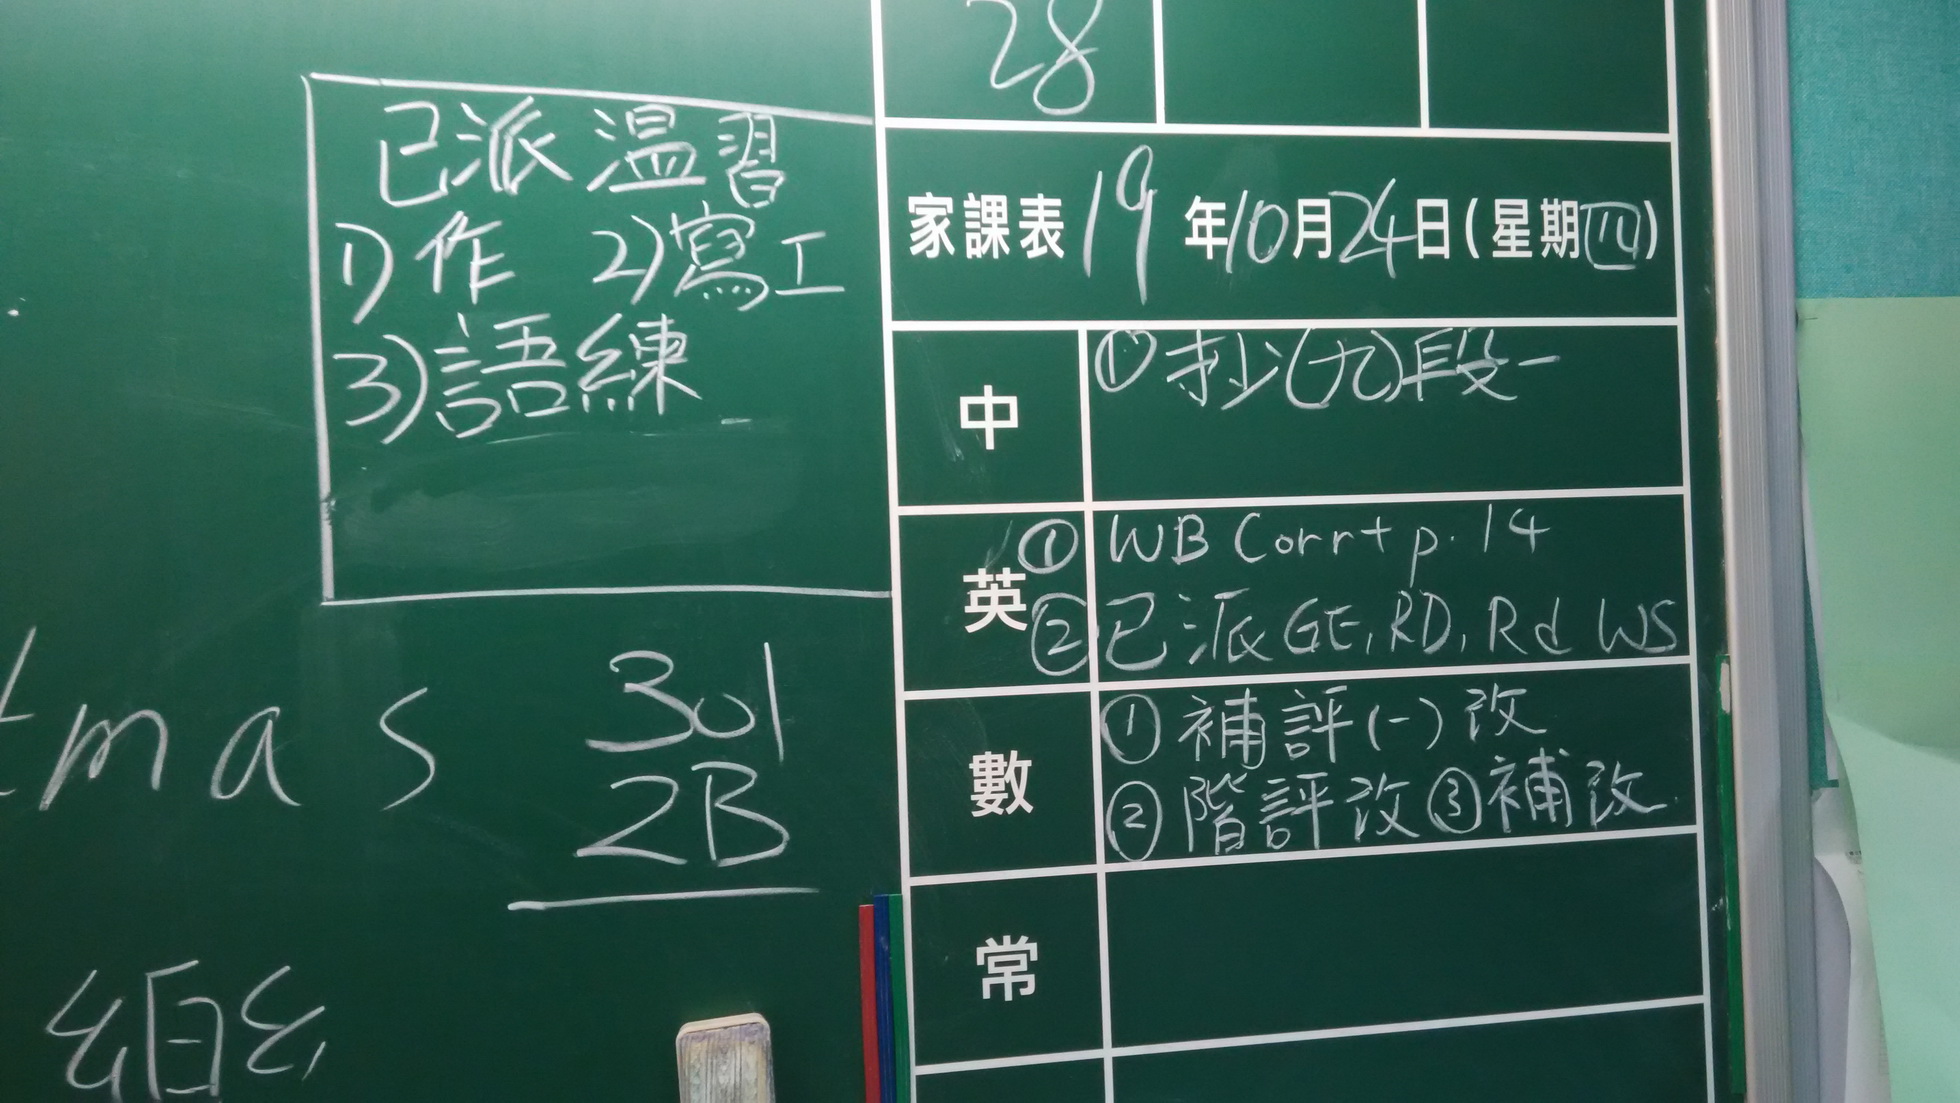 28
已派溫習
1)作 2)寫工
3)語練
家課表19年10月24日(星期四)
中
①抄(九)段一
英
① WB Corr+ p.14
② 已派 GE, RD, Rd WS
數
①補評(一)改
②階評改③補改
常
tmas
301
2B